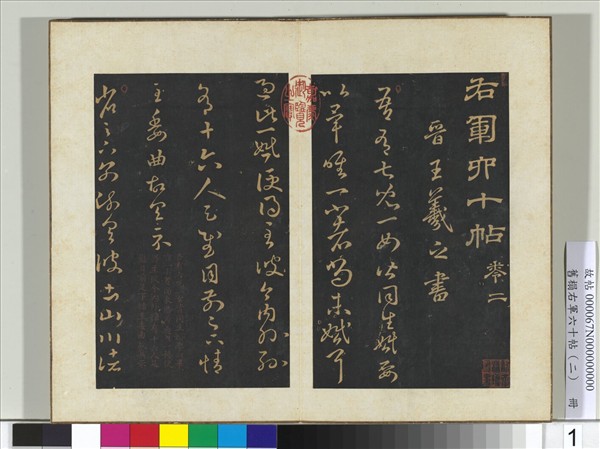 右軍六十帖 卷二
晉王羲之書
吾有七兒一女皆同生婚娶
以畢唯一小者尚未婚耳
過此一婚便得至彼今內外孫
有十六人足慰目前足下情
至委曲故具示
省足下別疏具彼土山川諸
故帖 000067N000000000
舊搨右軍六十帖(二) 冊
1